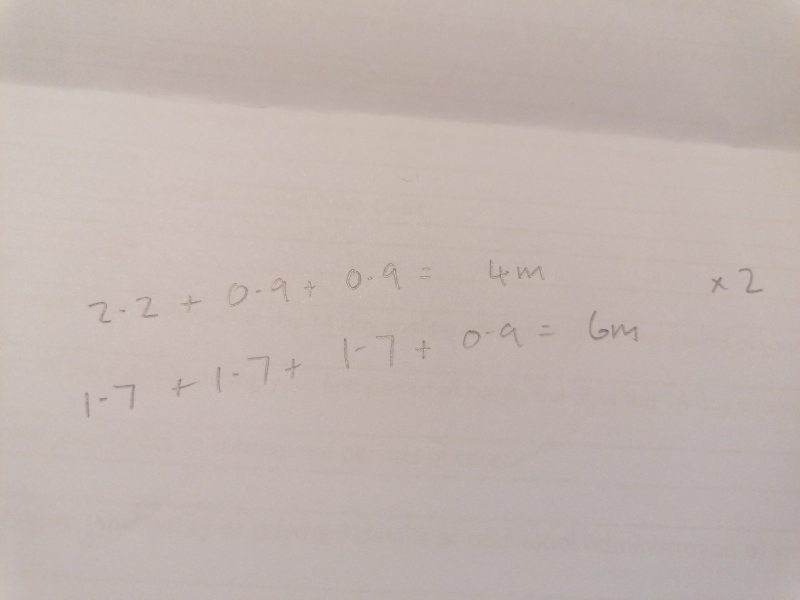 2.2 + 0.9 + 0.9 = 4m ×2
1.7 + 1.7 + 1.7 + 0.9 = 6m